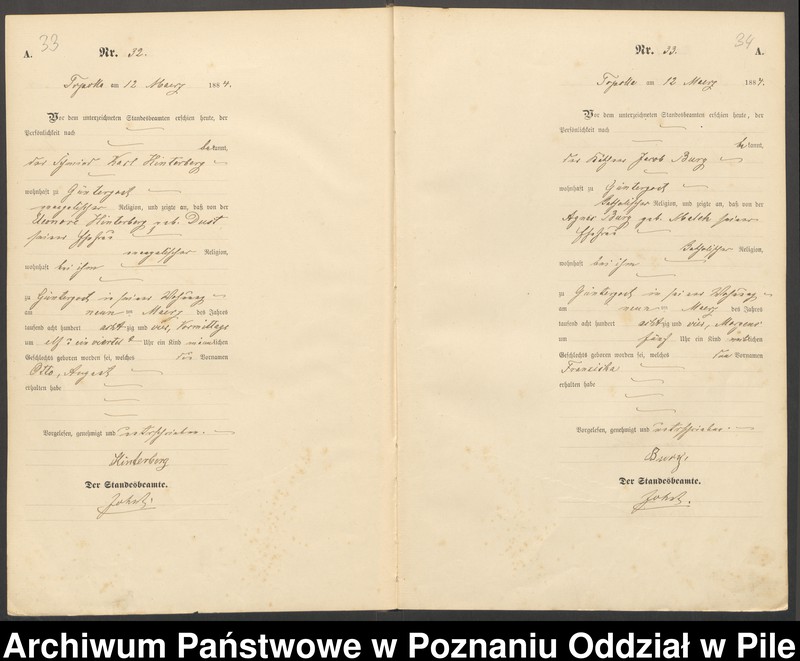 33
A.
Nr. 32.
am 12 Maerz 1884.
Vor dem unterzeichneten Standesbeamten erschien heute, der
Persönlichkeit nach
bekannt,
der Schmied Karl Hinterberg
wohnhaft zu
evangelischer Religion, und zeigte an, daß von der
Hinterberg geb.
seiner Ehefrau
evangelischer Religion,
wohnhaft bei ihm
zu in seiner Wohnung
am neun Maerz des Jahres
tausend acht hundert achtzig und vier, Vormittags
um elf ein viertel Uhr ein Kind männlichen
Geschlechts geboren worden sei, welches die Vornamen
Otto, August
erhalten habe
Vorgelesen, genehmigt und unterschrieben.
Hinterberg
Der Standesbeamte.
34
A.
Nr. 33.
am 12 Maerz 1884.
Vor dem unterzeichneten Standesbeamten erschien heute, der
Persönlichkeit nach
bekannt,
der Jacob Burg
wohnhaft zu
katholischer Religion, und zeigte an, daß von der
Agnes Burg geb. seiner
Ehefrau
katholischer Religion,
wohnhaft bei ihm
zu in seiner Wohnung
am neun Maerz des Jahres
tausend acht hundert achtzig und vier, Morgens
um fünf Uhr ein Kind weiblichen
Geschlechts geboren worden sei, welches den Vornamen
Franziska
erhalten habe
Vorgelesen, genehmigt und unterschrieben.
Burg.
Der Standesbeamte.
Archiwum Państwowe w Poznaniu Oddział w Pile